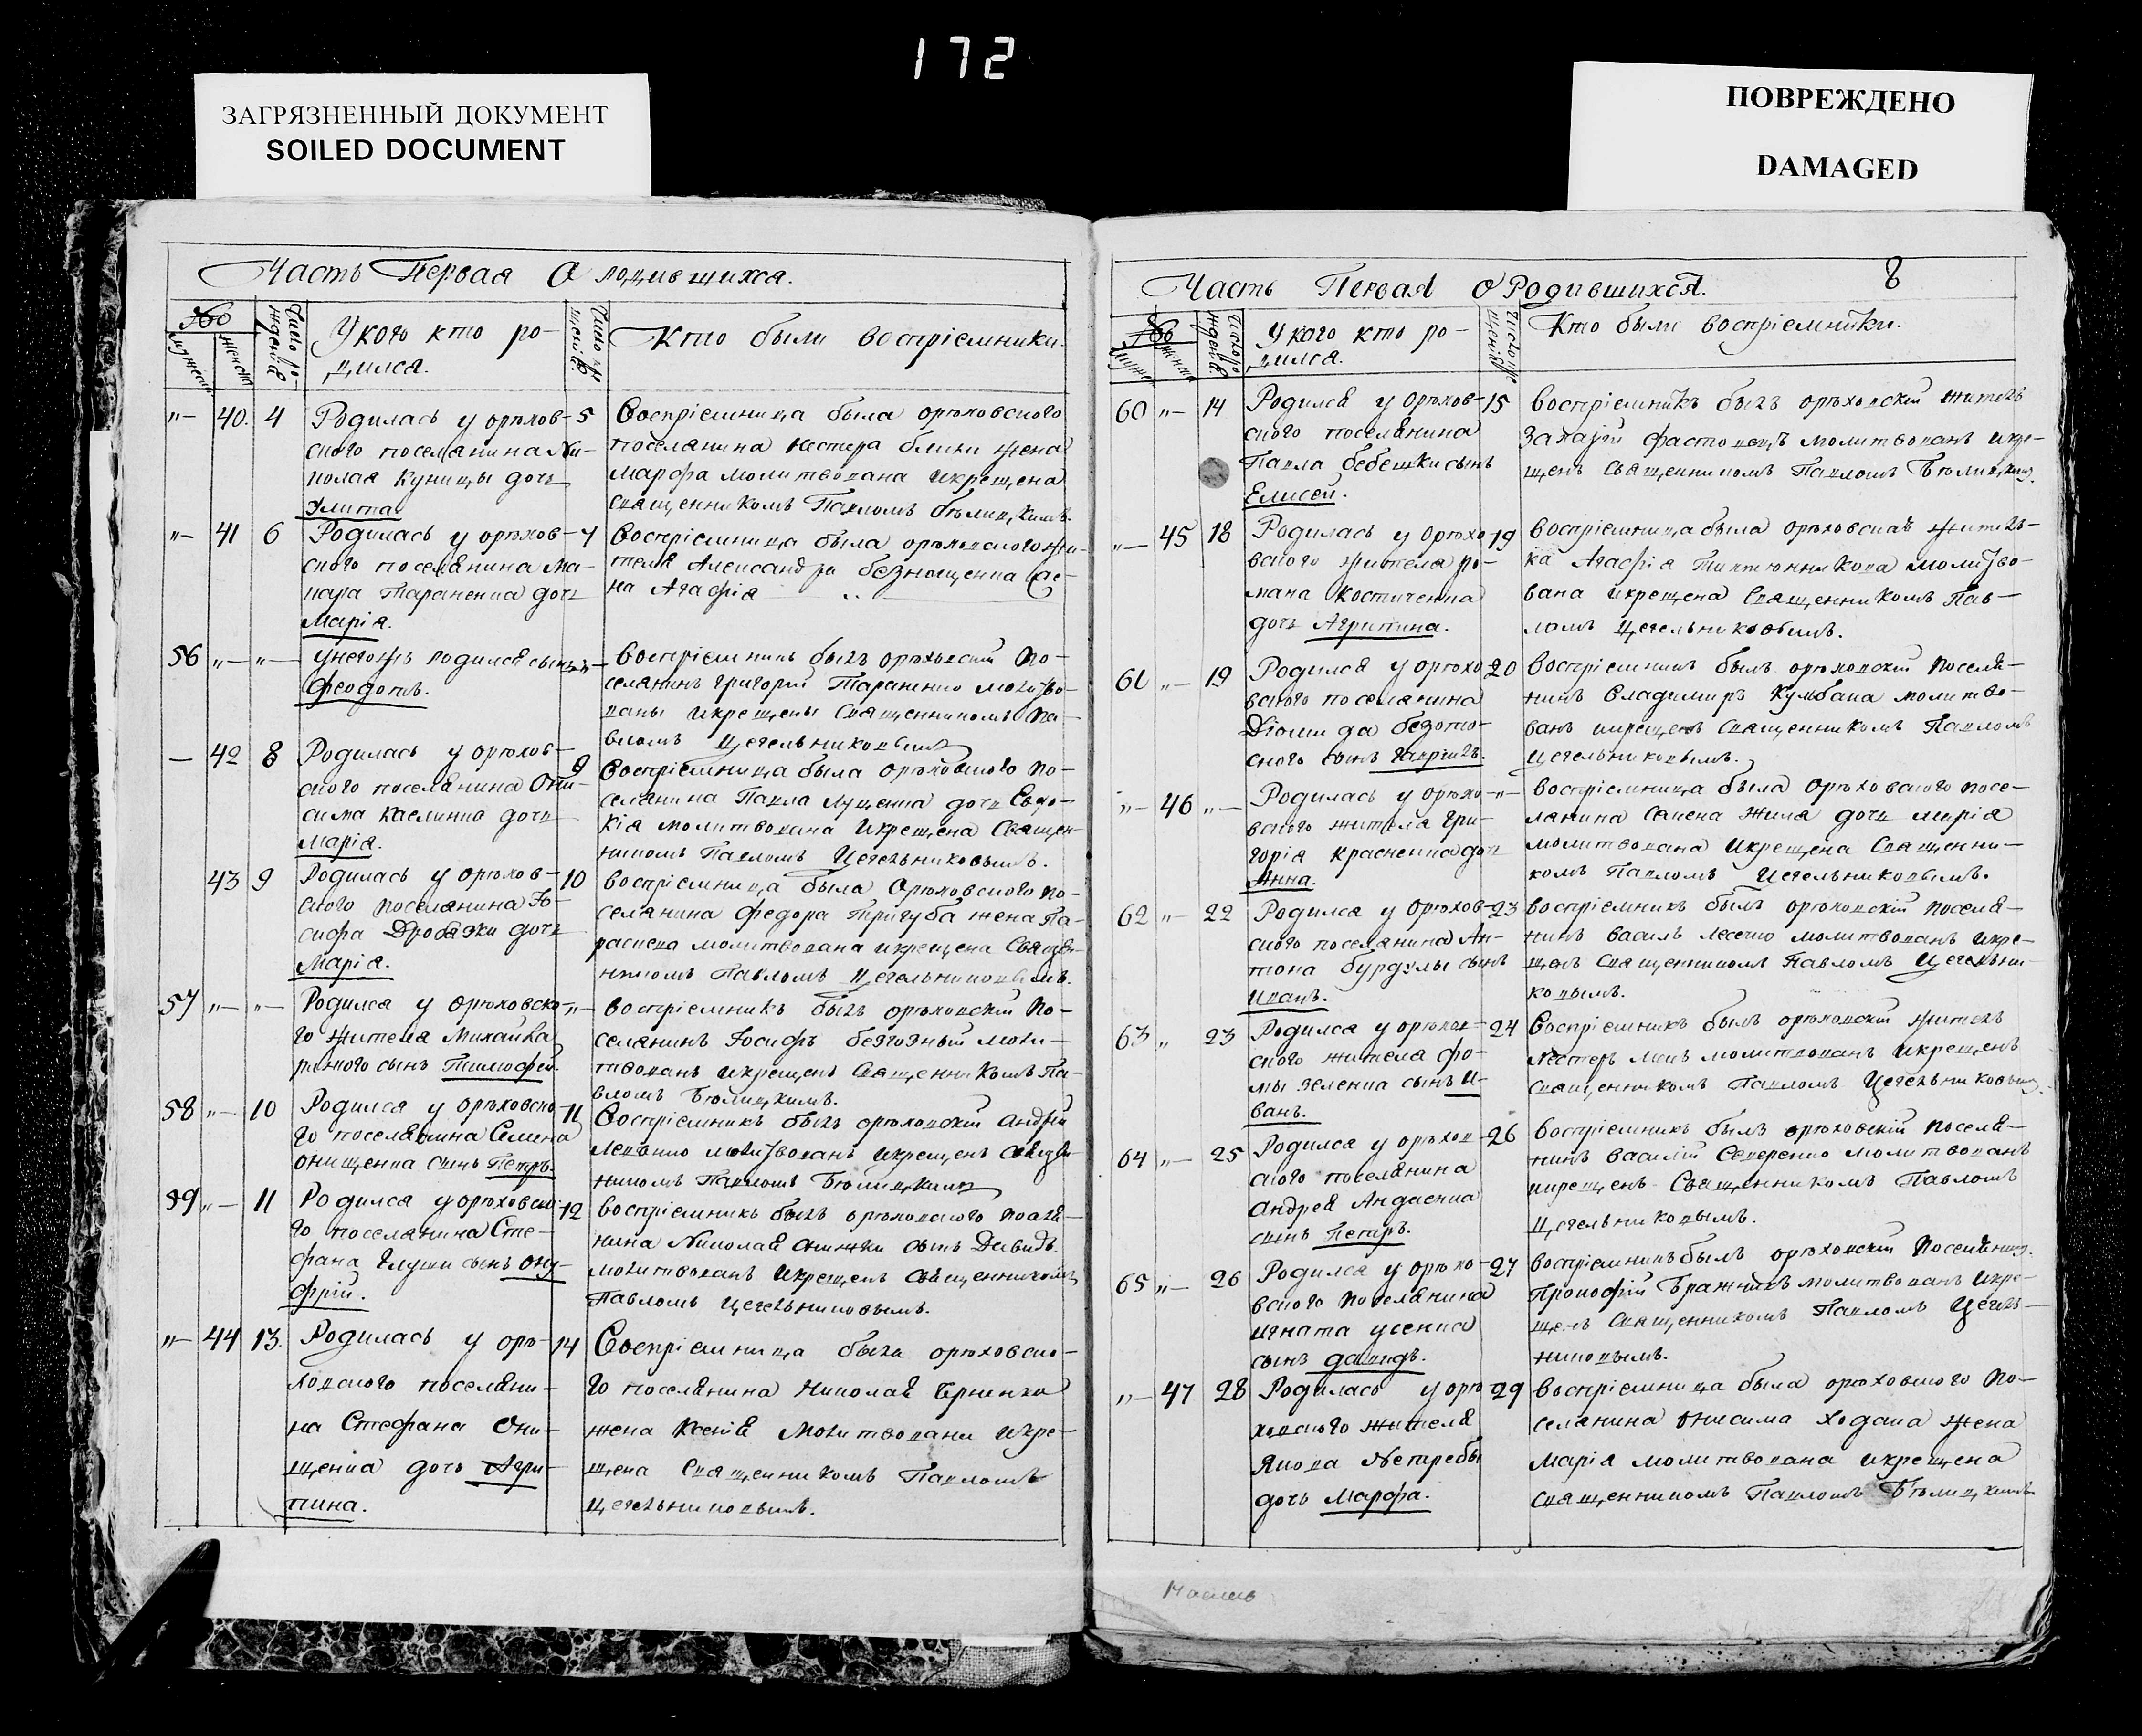 172
ЗАГРЯЗНЕННЫЙ ДОКУМЕНТ
SOILED DOCUMENT
ПОВРЕЖДЕНО
DAMAGED
Часть Первая О родившихся.
У кого кто ро-
дился.
Кто были воспріемники.
"— 40. 4 Родилась у орѣхов-
ского поселянина Ни-
колая Куницы дочь
Улита
5 Воспріемница была орѣховского
поселянина Нестера жена
Марфа молитвована и крещена
священникомъ Павломъ Бѣлицкимъ.
"— 41 6 Родилась у орѣхов-
ского поселянина Ма-
кара Тараненка дочь
Марія.
7 Воспріемница была орѣховского жи-
теля Александра безнощенка
на Агафія
56 "— "— У негожъ родился сынъ
Феодотъ.
"— Воспріемникъ былъ орѣховскій по-
селянинъ Григорій Тараненко молитво-
ваны и крещены священникомъ Па-
вломъ Цегельниковымъ
— 42 8 Родилась у орѣхов-
ского поселянина Они-
сима дочь
Марія.
9 Воспріемница была орѣховского по-
селянина Павла Луценка дочь Евдо-
кія молитвована и крещена священ-
никомъ Павломъ Цегельниковымъ.
43 9 Родилась у орѣхов-
ского поселянина Іо-
сифа Дробязки дочь
Марія.
10 воспріемница была Орѣховского по-
селянина Федора Тригуба жена Па-
раскева молитвована и крещена Священ-
никомъ Павломъ Цегельниковымъ.
57 "— "— Родился у орѣховско-
го жителя Михаила
сынъ Тимофей
"— воспріемникъ былъ орѣховскій по-
селянинъ Іосифъ молит-
твованъ и крещенъ Священникомъ Па-
вломъ Бѣлицкимъ.
58 "— 10 Родился у орѣховско-
го поселянина Семена
онищенка сынъ Петръ.
11 Воспріемникъ былъ орѣховскій Андрій
молитвованъ и крещенъ священ-
никомъ Павломъ Бѣлицкимъ
59 "— 11 Родился у орѣховско-
го поселянина Сте-
фана Глуши сынъ Ону-
фрій.
12 воспріемникъ былъ орѣховского поселя-
нина Николая сынъ Давидъ.
молитвованъ и крещенъ священникомъ
Павломъ Цегельниковымъ.
"— 44 13. Родилась у орѣ-
ховского поселяни-
на Стефана Они-
щенка дочь Агри-
пина.
14 Воспріемница была орѣховско-
го поселянина Николая
жена Ксенія молитвована и кре-
щена Священникомъ Павломъ
Цегельниковымъ.
Часть Первая О Родившихся.
8
У кого кто ро-
дился.
Кто были воспріемники.
60 "— 14 Родился у Орѣхов-
ского поселянина
Павла Бебешки сынъ
Елисей.
15 воспріемникъ былъ орѣховскій житель
Захарій молитвованъ и кре-
щенъ священникомъ Павломъ Бѣлицким.
"— 45 18 Родилась у Орѣхо-
вского жителя Ро-
мана Костиченка
дочь Агрипина.
19 воспріемница была орѣховская житель-
ка Агафія молитво-
вана и крещена Священникомъ Пав-
ломъ Цегельниковымъ.
61 "— 19 Родился у орѣхо-
вского поселянина
Діомида безото-
сного сынъ Гавріилъ.
20 воспріемникъ былъ орѣховскій поселя-
нинъ Владимиръ Кулбака молитво-
ванъ и крещенъ священникомъ Павломъ
Цегельниковымъ.
"— 46 "— Родилась у орѣхо-
вского жителя Гри-
горія Красненка дочь
Анна.
"— воспріемница была Орѣховского посе-
лянина Семена Жила дочь Марія
молитвована и крещена Священни-
комъ Павломъ Цегельниковымъ.
62 "— 22 Родился у Орѣхов-
ского поселянина Ан-
тона Бурдулы сынъ
Иванъ.
23 воспріемникъ былъ орѣховскій поселя-
нинъ василь молитвованъ и кре-
щенъ священникомъ Павломъ Цегельни-
ковымъ.
63 " 23 Родился у орѣхов-
ского жителя Фо-
мы Зеленка сынъ И-
ванъ.
24 Воспріемникъ былъ орѣховскій житель
Нестеръ молитвованъ и крещенъ
священникомъ Павломъ Цегельниковым.
64 "— 25 Родился у орѣхов-
ского поселянина
Андрея
сынъ Петръ.
26 воспріемникъ былъ орѣховскій поселя-
нинъ Василій Северенко молитвованъ
и крещенъ Священникомъ Павломъ
Цегельниковымъ.
65 "— 26 Родился у орѣхо-
вского поселянина
Игната Усенка
сынъ Давидъ.
27 воспріемникъ былъ орѣховскій поселянин.
Прокофій Бражникъ молитвованъ и кре-
щенъ священникомъ Павломъ Цегель-
никовымъ.
"— 47 28 Родилась у орѣ-
ховского жителя
Якова Нетребы
дочь Марфа.
29 воспріемница была орѣховского по-
селянина Онисима Ходака жена
Марія молитвована и крещена
священникомъ Павломъ Бѣлицкимъ